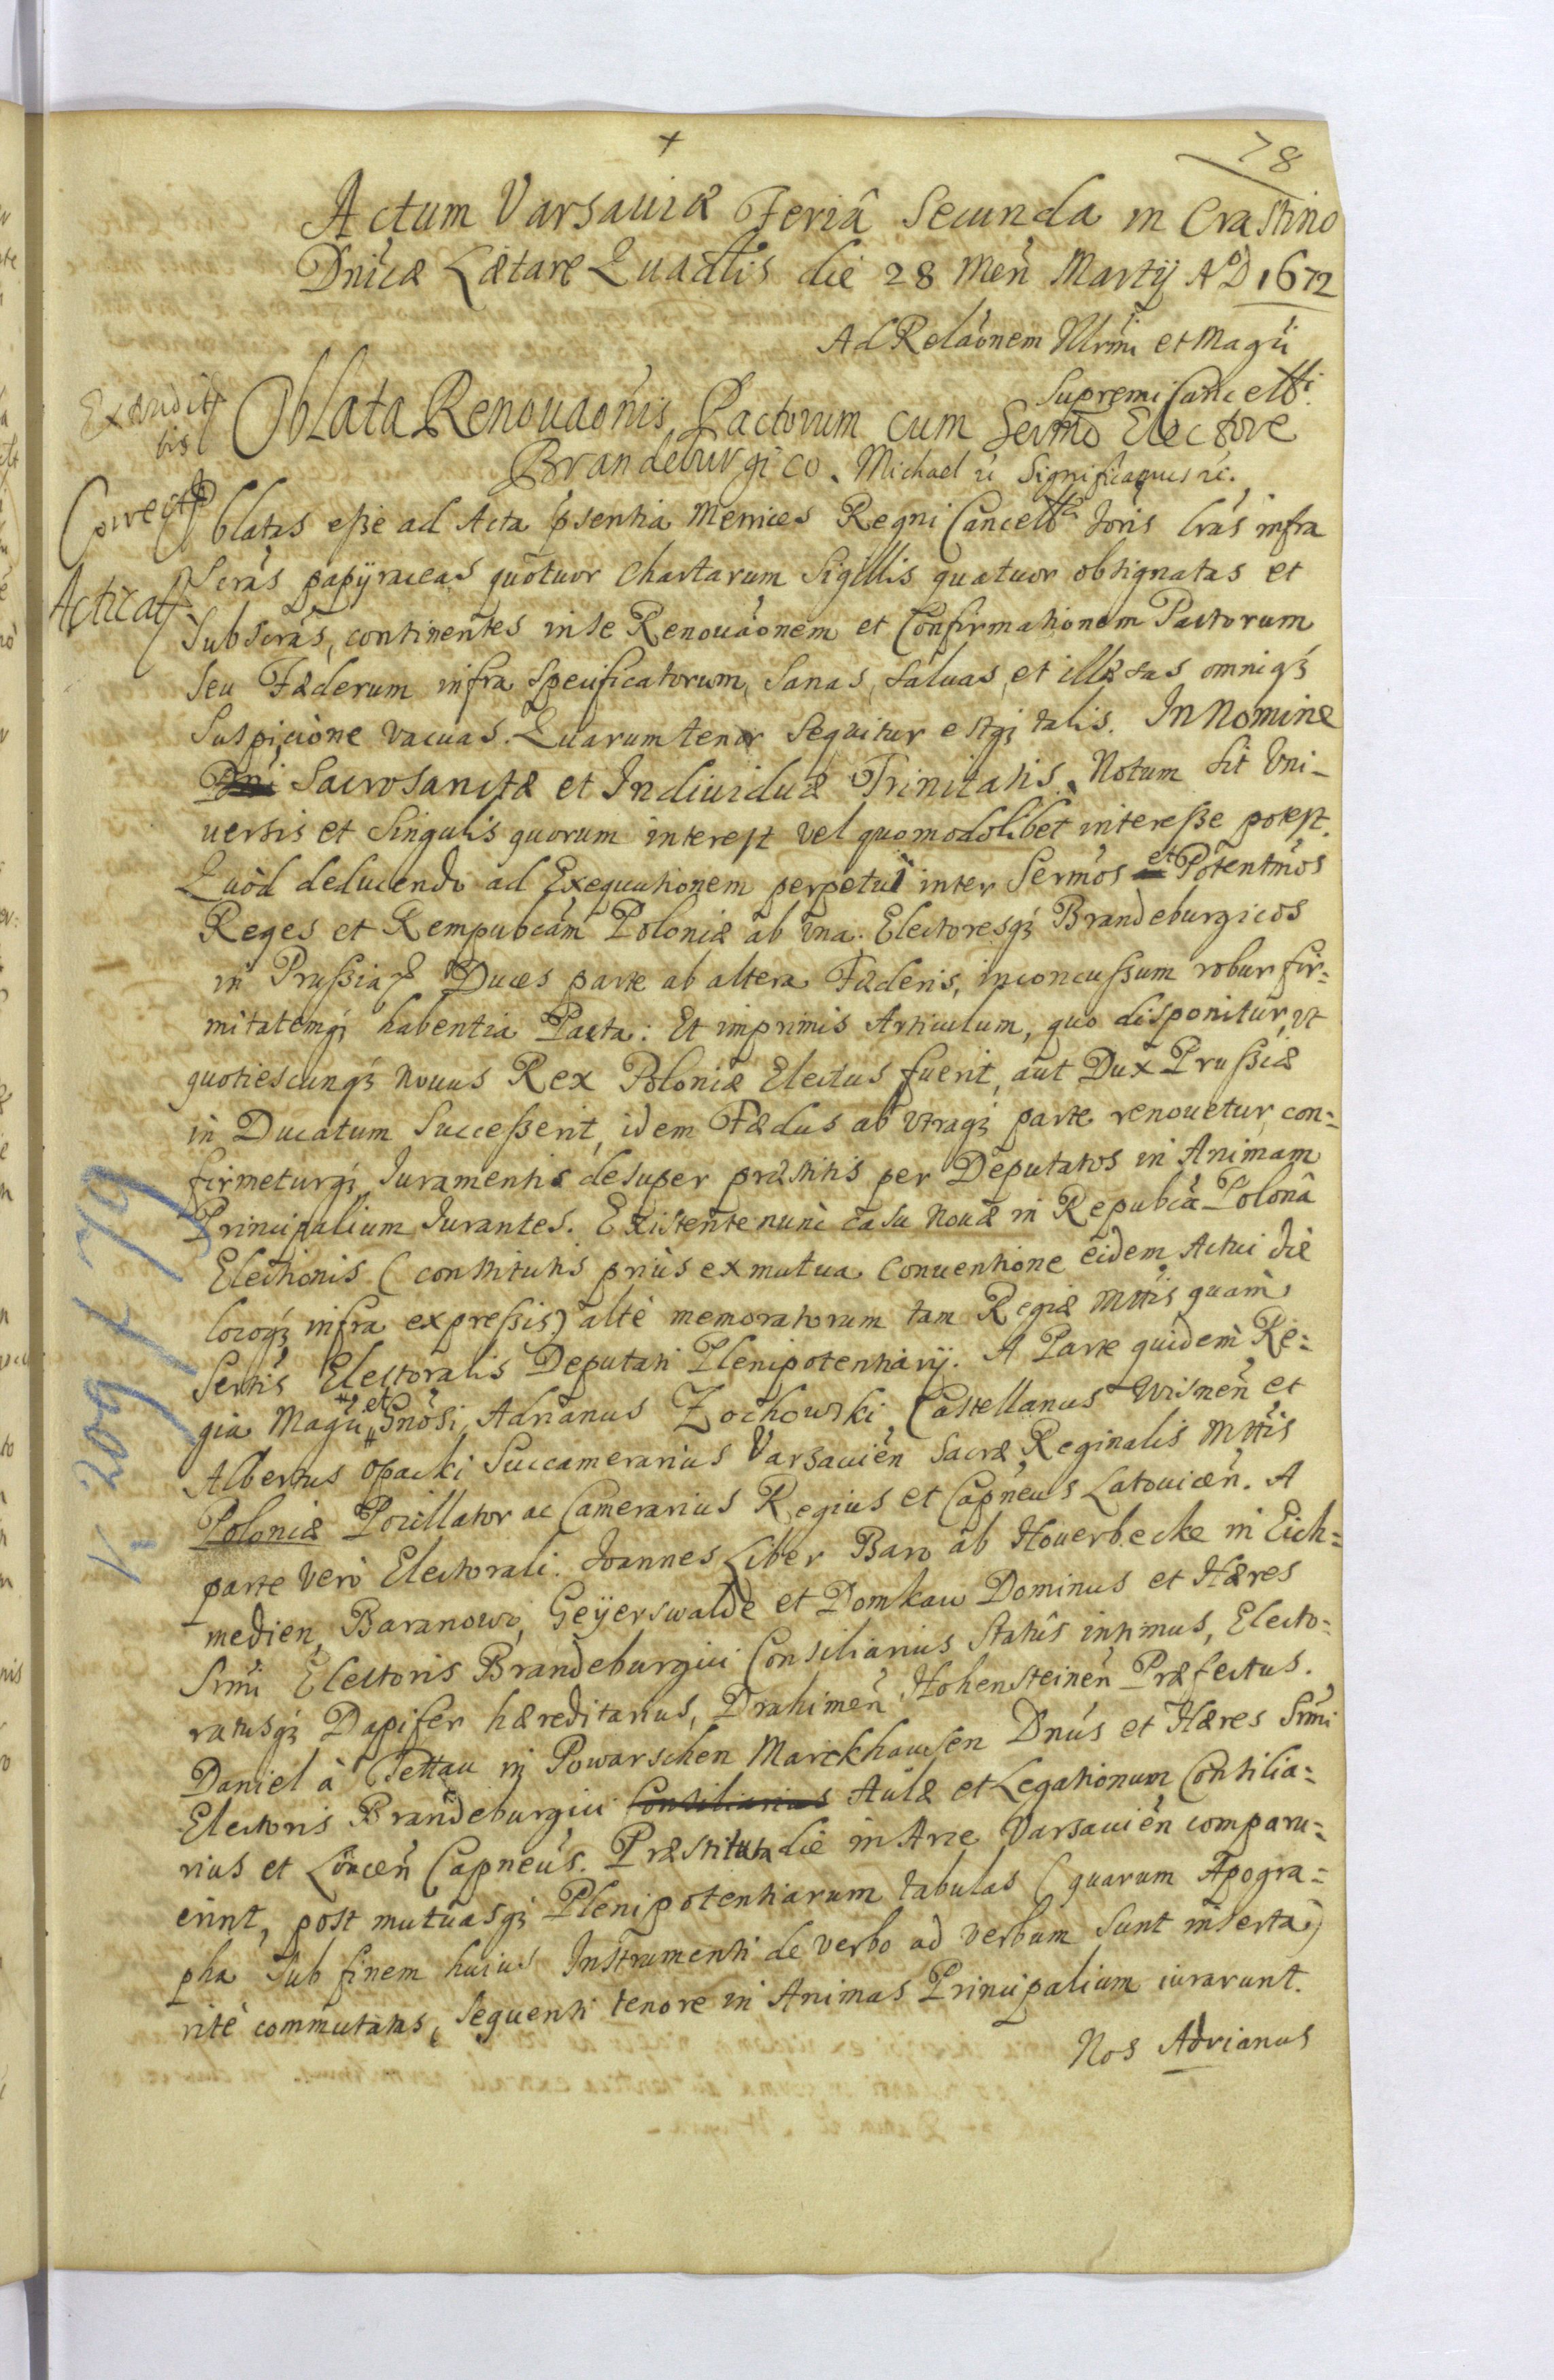 +
78
Actum Varsaviæ Feriâ Secunda in Crastino
Dnicæ Lætare Quadlis die 28 Men Martij A D 1672
Ad Relaonem Illrmi et Magci
Supremi Cancelli.
Oblata Renovaonis Pactorum cum Sermo Electore
Brandeburgico. Michael &c Significamus &c.
Correct
Acticat
Oblatas eße ad Acta pntia Metrices Regni Cancell Loris Lras infra
Scras papyraceas quotuor chartarum Sigillis quatuor obsignatas et
Subscras, continentes in se Renovaonem et Confirmationem Pactorum
Seu Fæderum infra Specificatorum, Sanas, salvas, et illæsas omniqz
Suspicione vacuas. Quarum tenor sequitur estqz talis. In Nomine
Dni Sacrosanctæ et Individuæ Trinitatis. Notum sit Uni-
uersis et Singulis quorum interest vel quomodolibet intereße potest.
Quòd deducendo ad Exequutionem perpetui inter Sermos et Potentmos
Reges et Rempubcam Poloniæ ab vna. Electoresqz Brandeburgicos
in Prußiaæ Duces parte ab altera Fæderis, inconcußum robur fir=
mitatemqz habentia Pacta: Et imprimis Articulum, quo disponitur, vt
quotiescunqz novus Rex Poloniæ Electus fuerit, aut Dux Prußiæ
in Ducatum Succeßerit, idem Fædus ab vtraqz parte renouetur, con=
firmeturqz Juramentis desuper præstitis per Deputatos in Animam
Principalium Jurantes. Existente nunc casu Novæ in Repubca Polonâ
Electionis (constitutis priùs ex mutua Conventione eidem Actui die
locoqz infra expreßis) altè memoratorum tam Regiæ Mttis quàm
Sertis Electoralis Deputati Plenipotentiarij. A Parte quidem Re=
gia Magci et Gnosi, Adrianus Zochowski, Castellanus Wisnen, et
Albertus Opacki Succamerarius Varsavien Sacræ Reginalis Mttis
Poloniæ Pocillator ac Camerarius Regius et Capneus Latovicen. A
parte verò Electorali. Joannes Liber Baro ab Houerbecke in Eich=
medien, Baranowo, Geyerswalde et Domkau Dominus et Hæres
Srmi Electoris Brandeburgici Consiliarius Statûs intimus, Electo=
ratusqz Dapifer hæreditarius, Drahimen, Hohensteinen Præfectus.
Daniel à Tettau in Powarschen Marckhausen Dnus et Hæres Srmi
Electoris Brandeburgici Consiliarius Aulæ et Legationum Consilia=
rius et Loicen Capneus. Præstituta die in Arce Varsavien comparu=
erunt, post mutuasqz Plenipotentiarum tabulas (quarum Apogra=
pha sub finem huius Instrumenti de verbo ad verbum sunt inserta)
ritè commutatas, sequenti tenore in Animas Principalium iurarunt.
Nos Adrianus